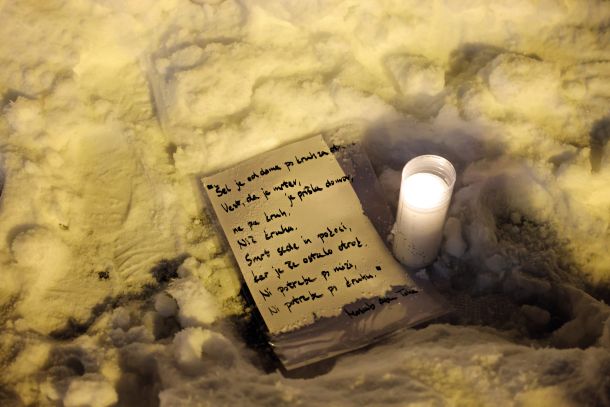 "Šel je od doma po kruh za
Vest, da je mrtev,
je prišla domov,
ne pa kruh,
Nič kruha.
Smrt sede in počaši,
kar je še ostalo otrok.
Ni potrebe po miži,
Ni potrebe po kruhu."